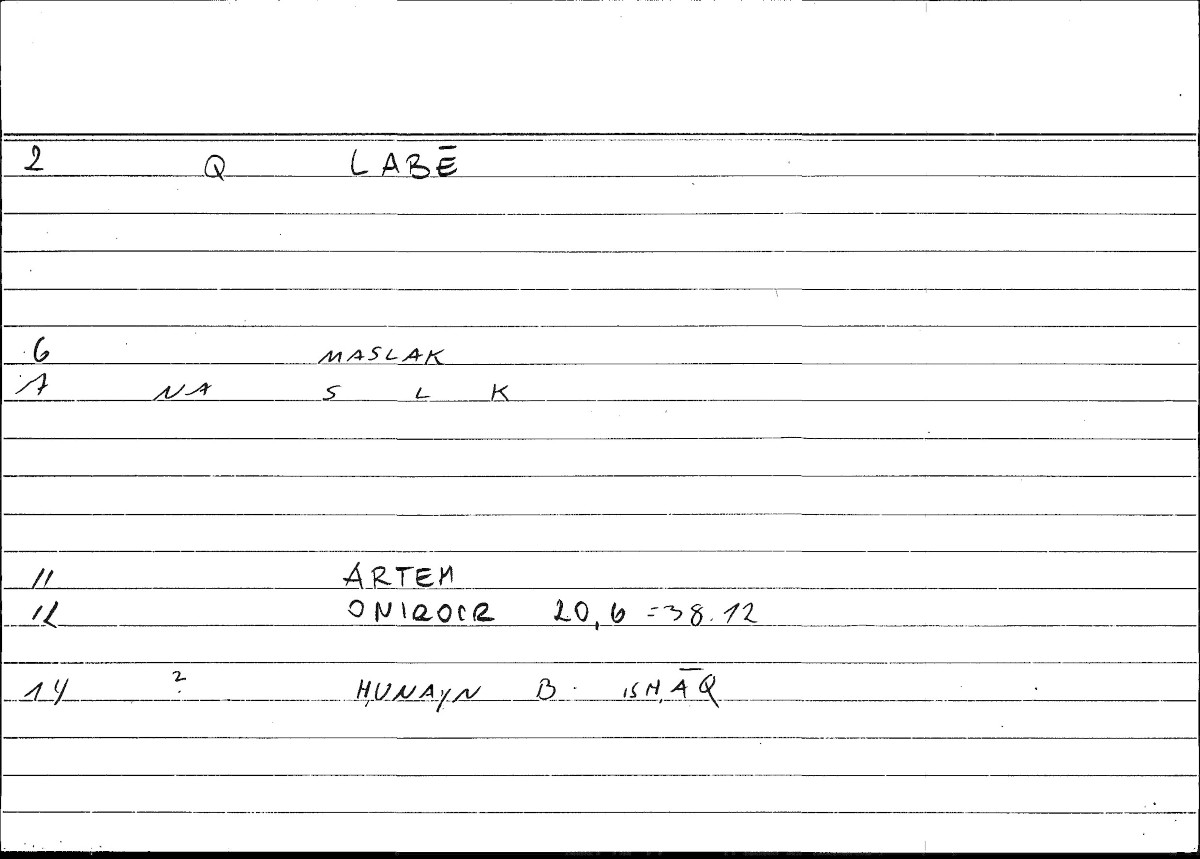 2 Q LABĒ
6 MASLAK
7 NA S L K
11 ARTEM
12 ONIROCR 20,6 =38.12
14 2 ḤUNAYN B. ISḤĀQ